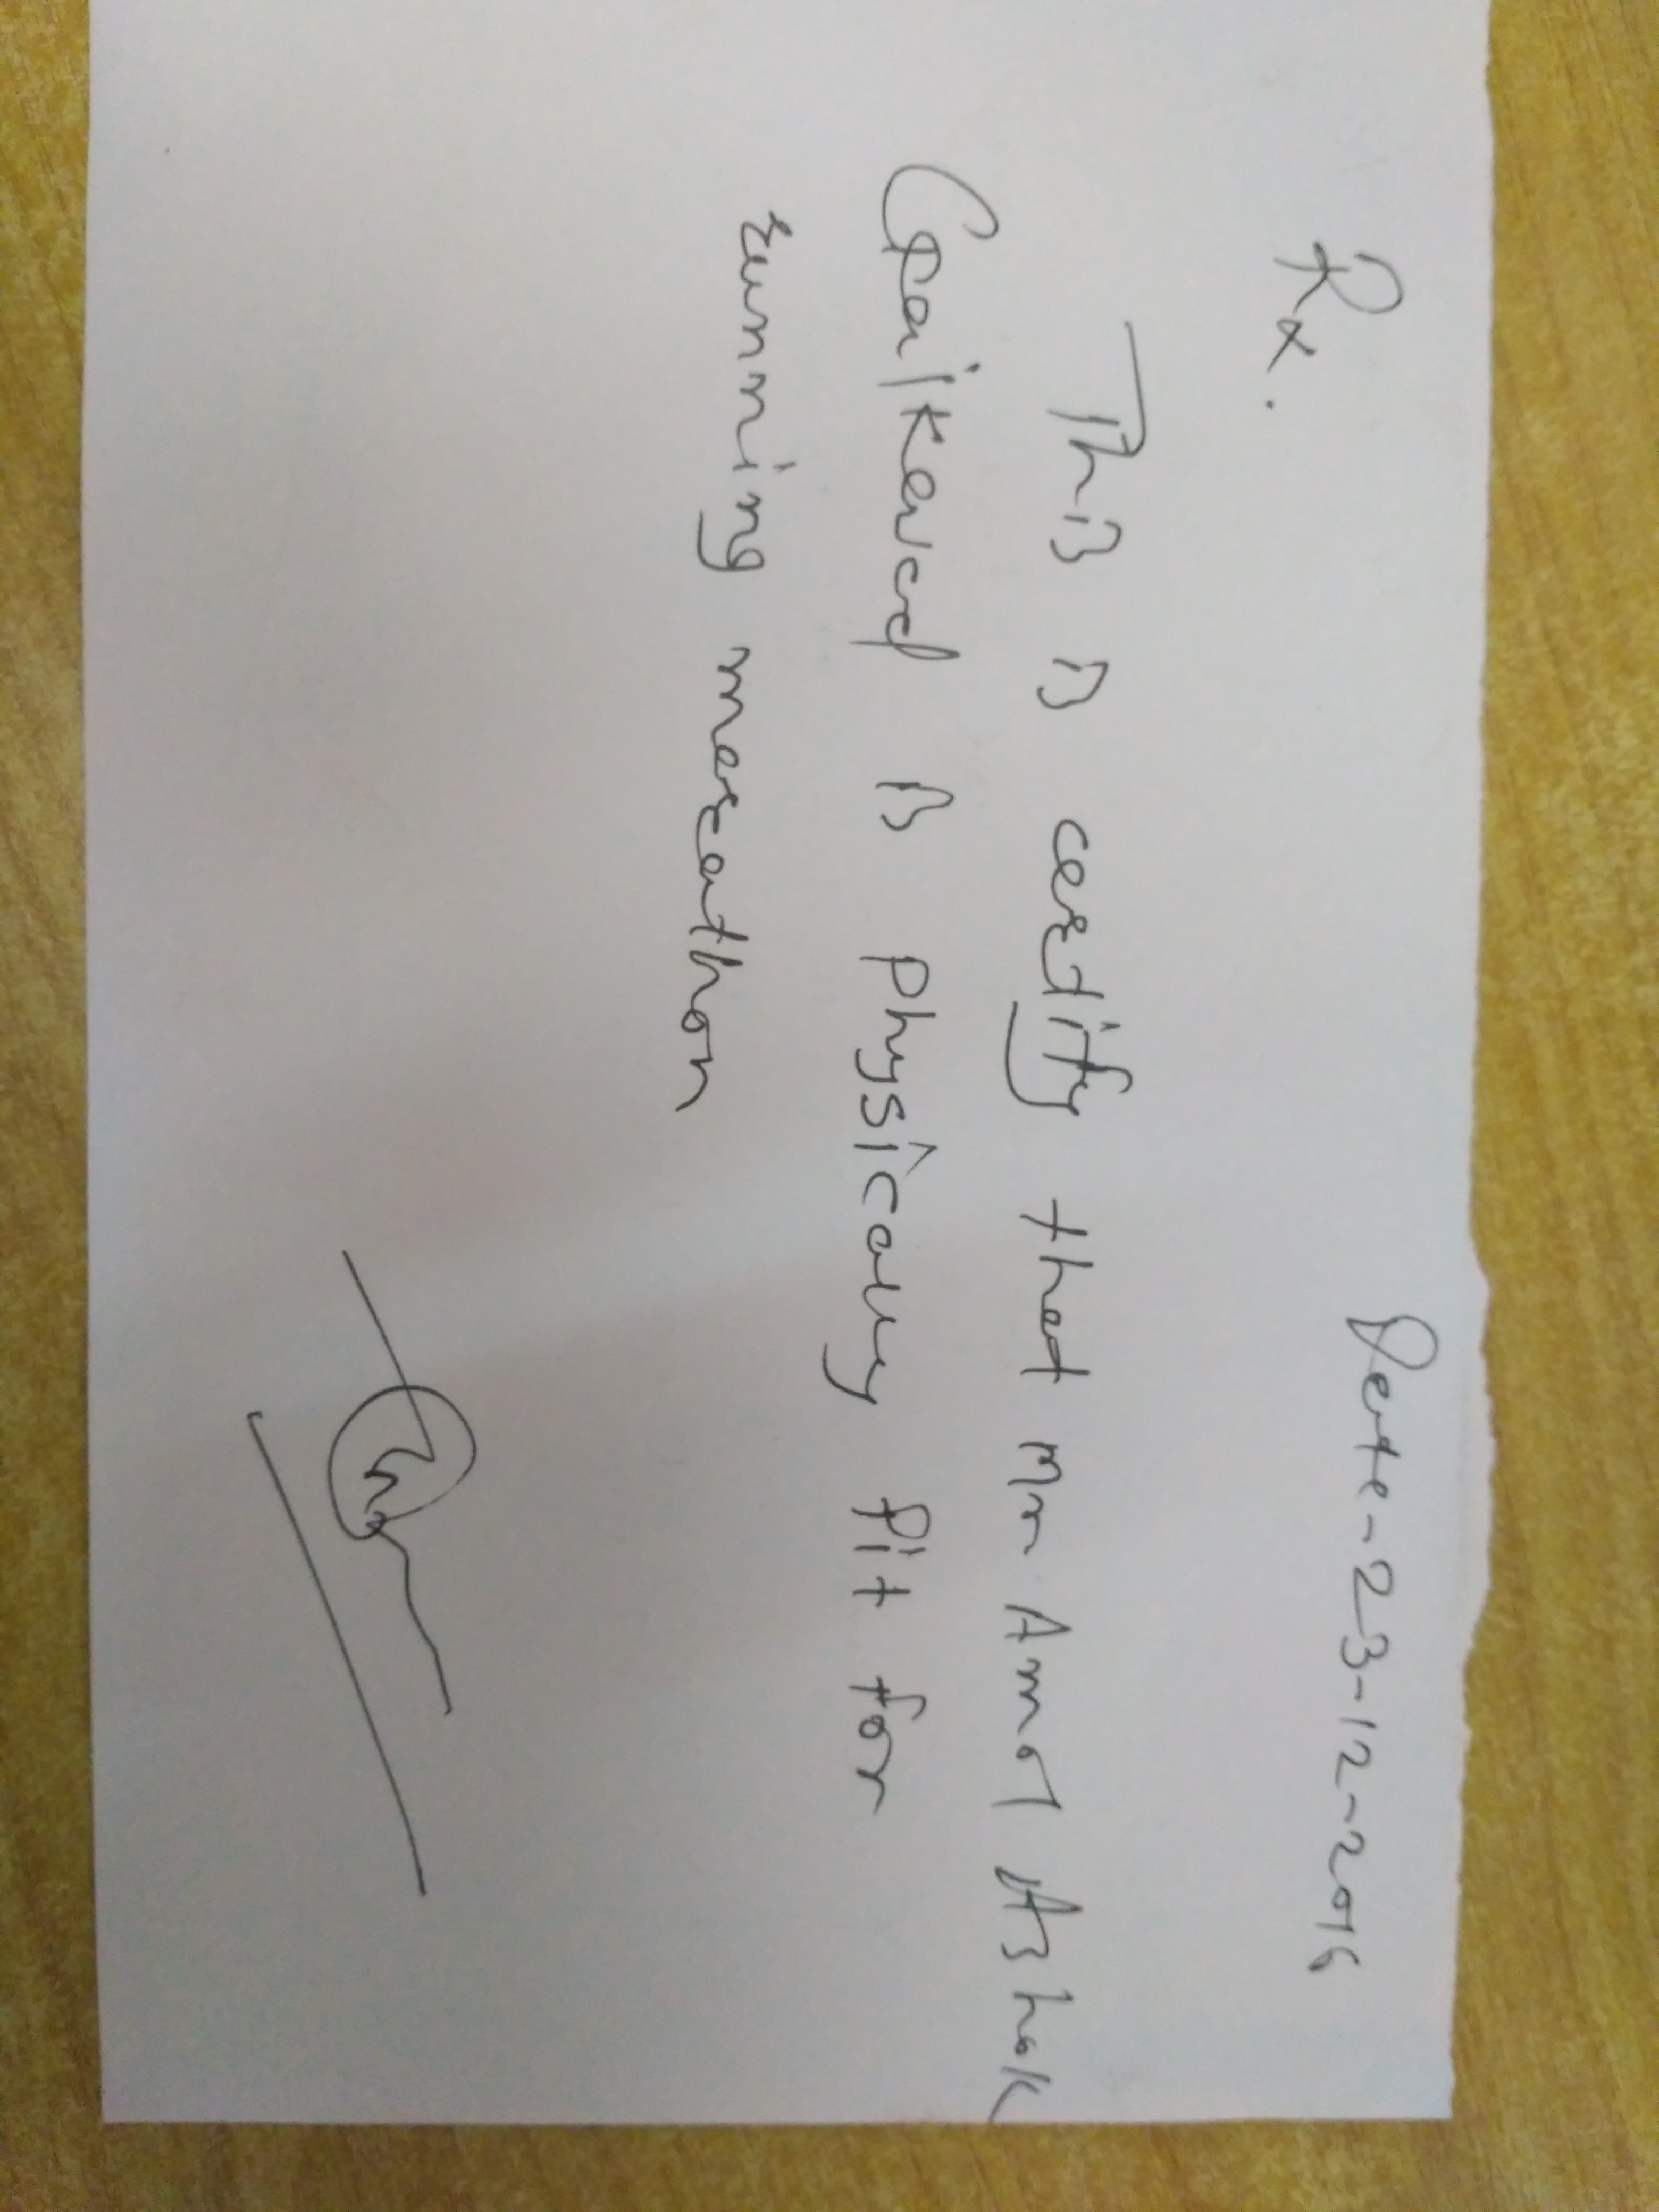 Date-23-12-2016
Rx.
This is certify that Mr Amol Ashok
Gaikawad is physically fit for
running marathon